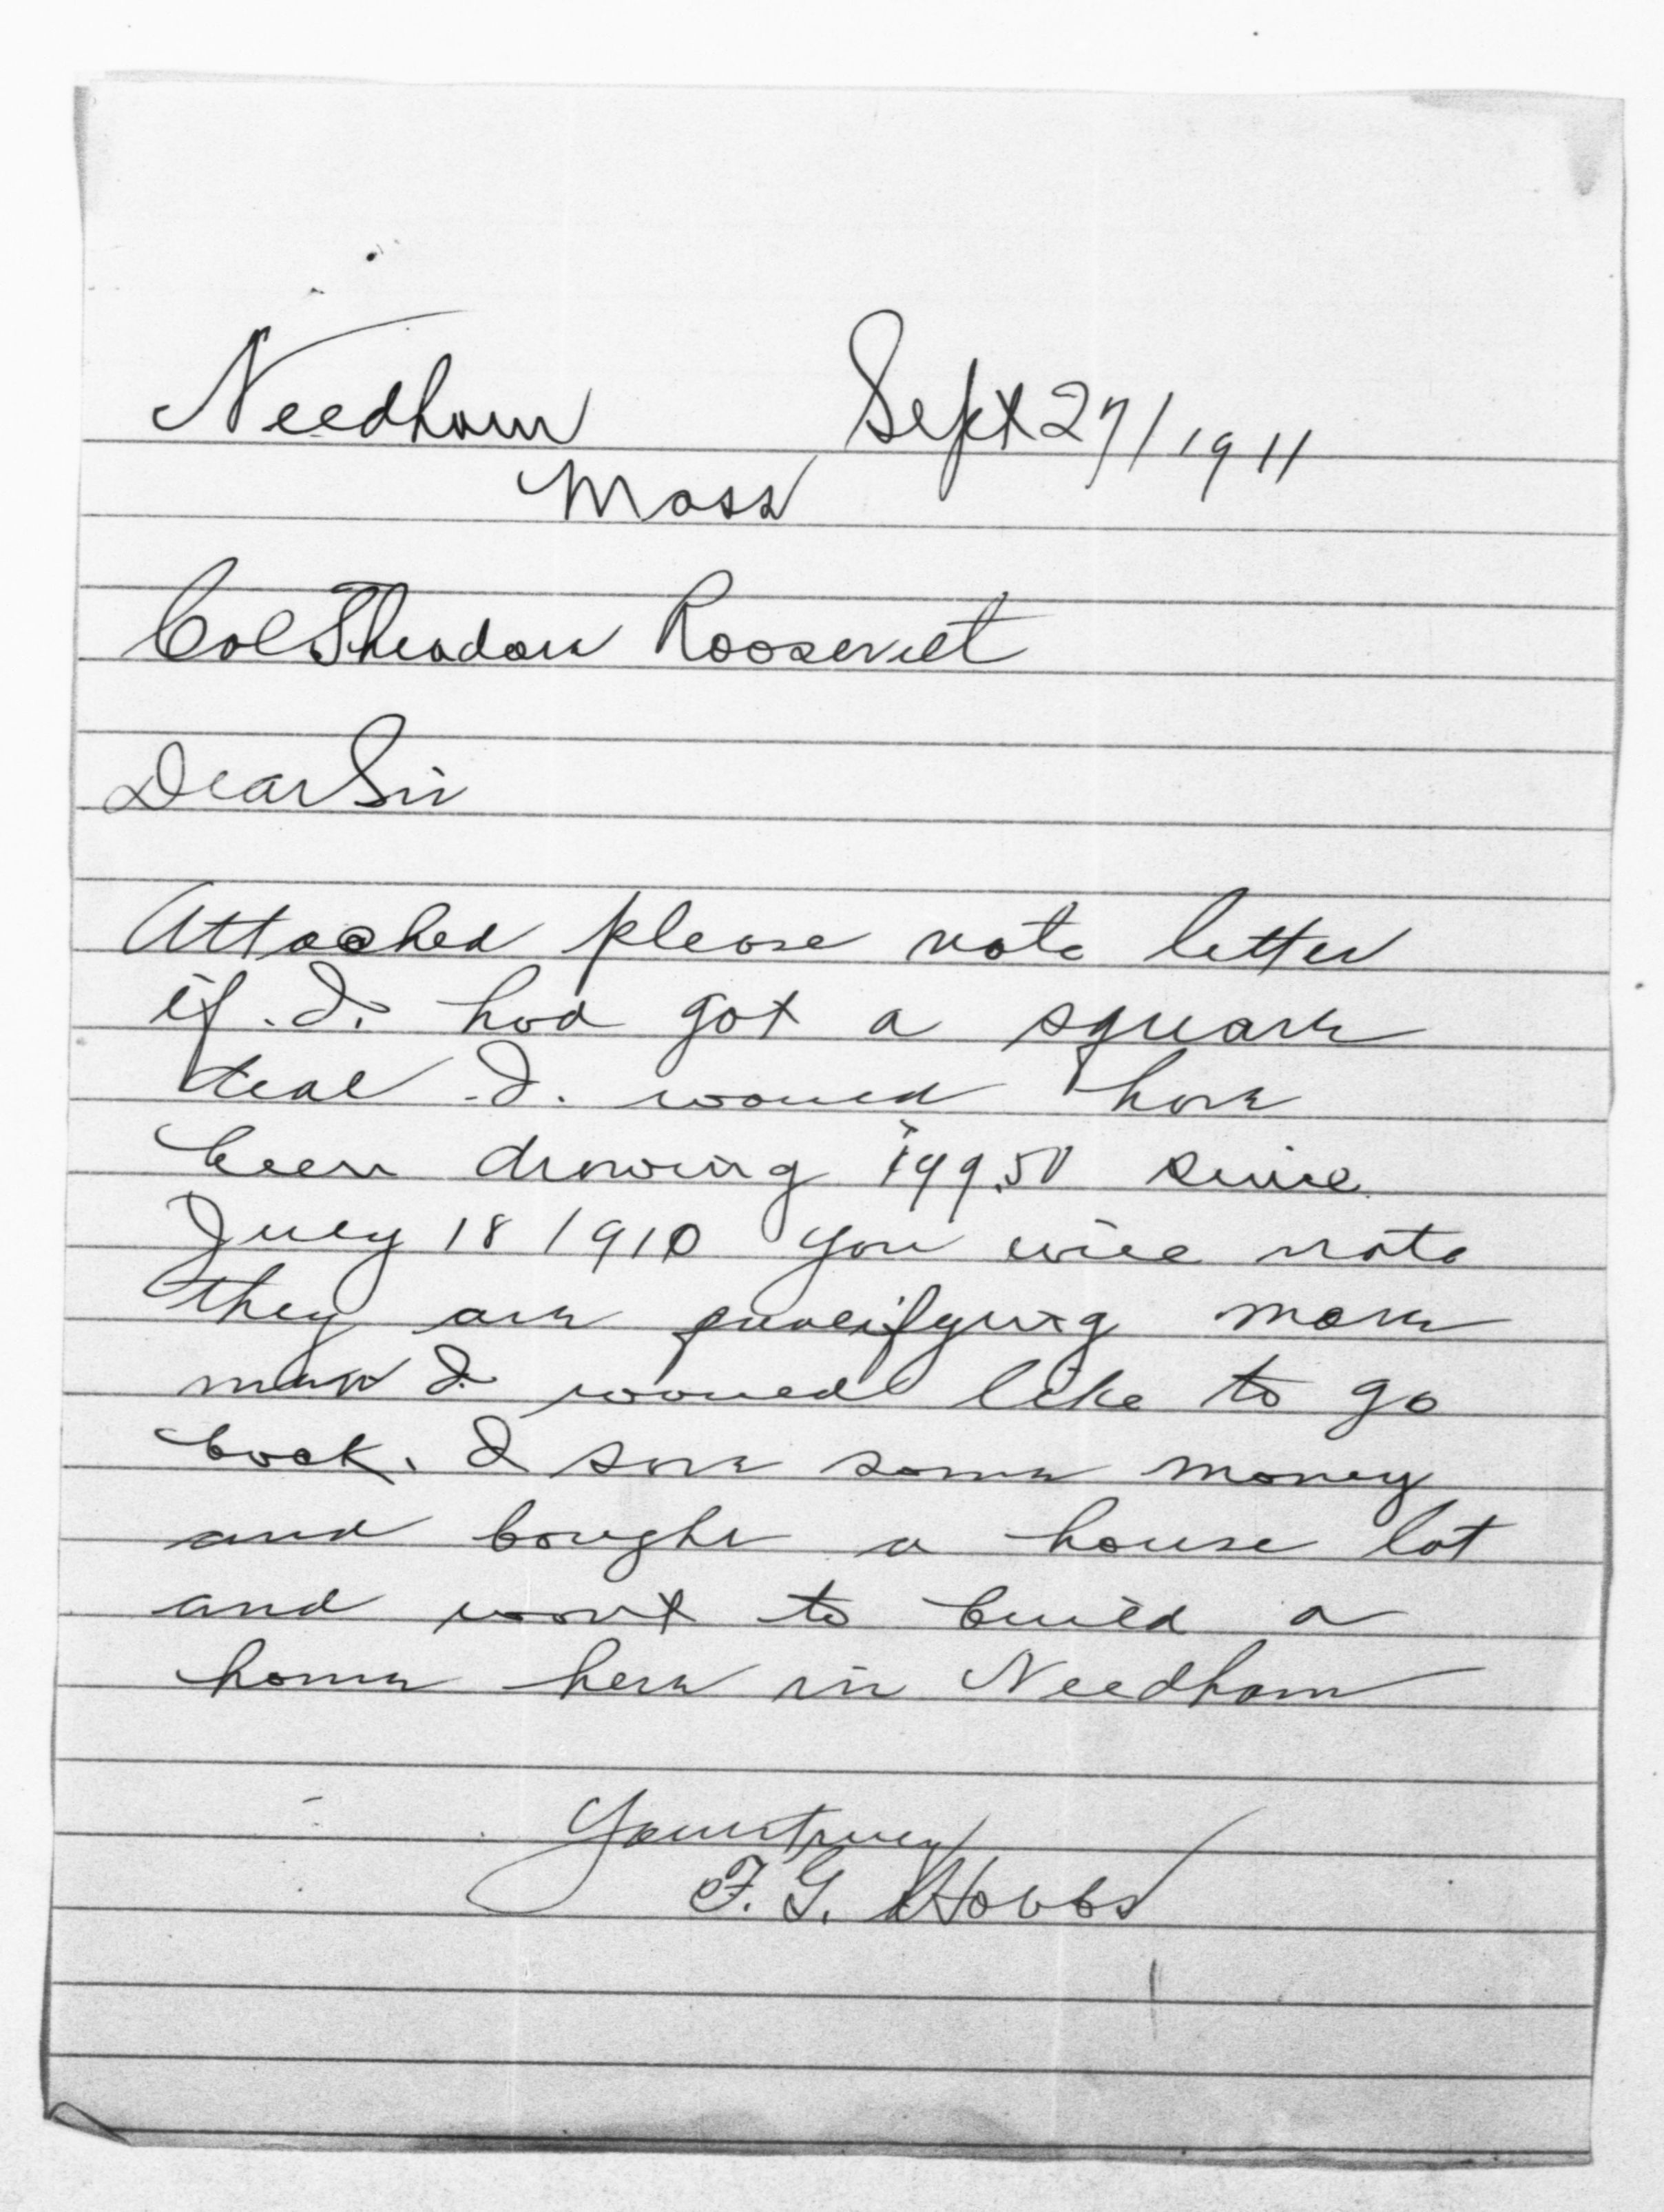 Needham Sept 27/1911
Mass
Col Theodore Roosevelt
Dear Sir
Attached please note letter
if. I. had got a square
deal I. would have
been drawing 99.50 since
July 18 1910 you will note
they are qualifying more
men I would like to go
back. I save some money
and bought a house lot
and want to build a
home here in Needham
Yours truly
F. G. Hobbs